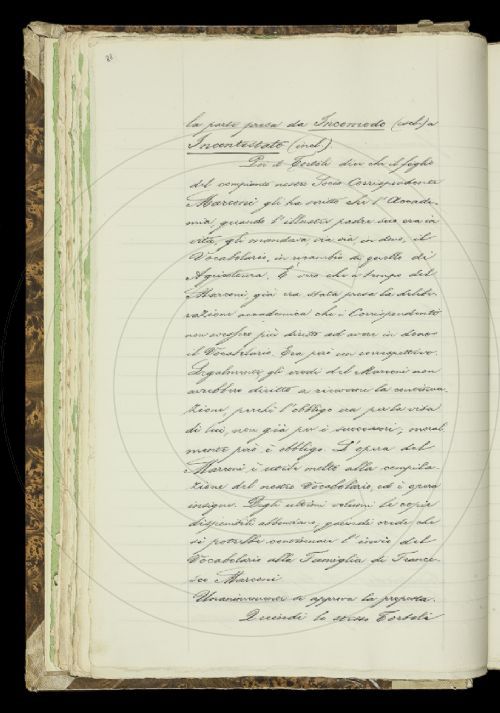 la parte presa da Incomodo (escl.) a
Incontestato (incl.).
Poi il Tortoli dice che il figlio
del compianto nostro Socio Corrispondente
Marconi gli ha scritto che l'Accade-
mia, quando l'illustre padre suo era in
vita, gli mandava via via in dono, il
Vocabolario, in ricambio di quello di
Agricoltura. È vero che a tempo del
Marconi, già era stata presa la delibe-
razione accademica che i Corrispondenti
non avessero più diritto ad avere in dono
il Vocabolario. Era però un correspettivo.
Legalmente gli eredi del Marconi non
avrebbero diritto a ricevere la continua-
zione, perchè l'obbligo era per la vita
di lui, non già per i successori; moral
mente però è obbligo. L'opera del
Marconi è utile molto alla compila-
zione del nostro Vocabolario, ed è opera
insigne. Degli ultimi volumi le copie
disponibili abbondano, quindi crede che
si potrebbe continuare l'invio del
Vocabolario alla Famiglia di France-
sco Marconi
Unanimemente si approva la proposta.
Quindi lo stesso Tortoli